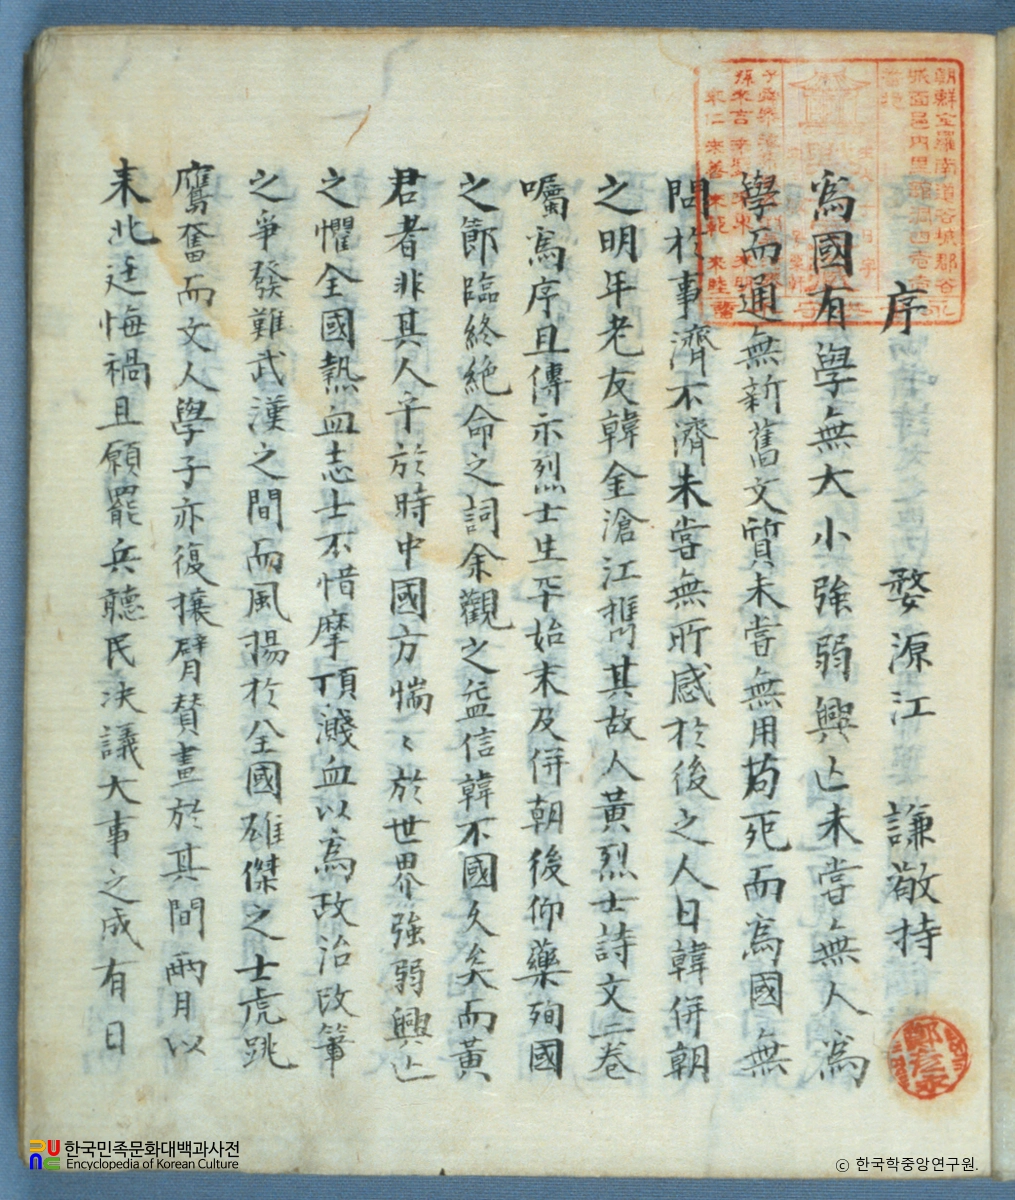 序
婺源江謙敬持
爲國有學無大小強弱興亡未嘗無人爲
學而通無新舊文質未嘗無用苟死而爲國無
問於事濟不濟未嘗無所感於後之人日韓併朝
之明年老友韓金滄江携其故人黃烈士詩文二卷
囑爲序且傳示烈士生平始末及併朝後仰藥殉國
之節臨終絶命之詞余觀之益信韓不國久矣而黃
君者非其人乎於時中國方惴〻於世界強弱興亡
之懼全國熱血志士不惜摩頂濺血以爲政治改革
之爭發難武漢之間而風揚於全國雄傑之士虎跳
鷹奮而文人學子亦復攘臂賛畫於其間兩月以
来北廷悔禍且願罷兵聽民決議大事之成有日
한국민족문화대백과사전
Encyclopedia of Korean Culture
© 한국학중앙연구원.